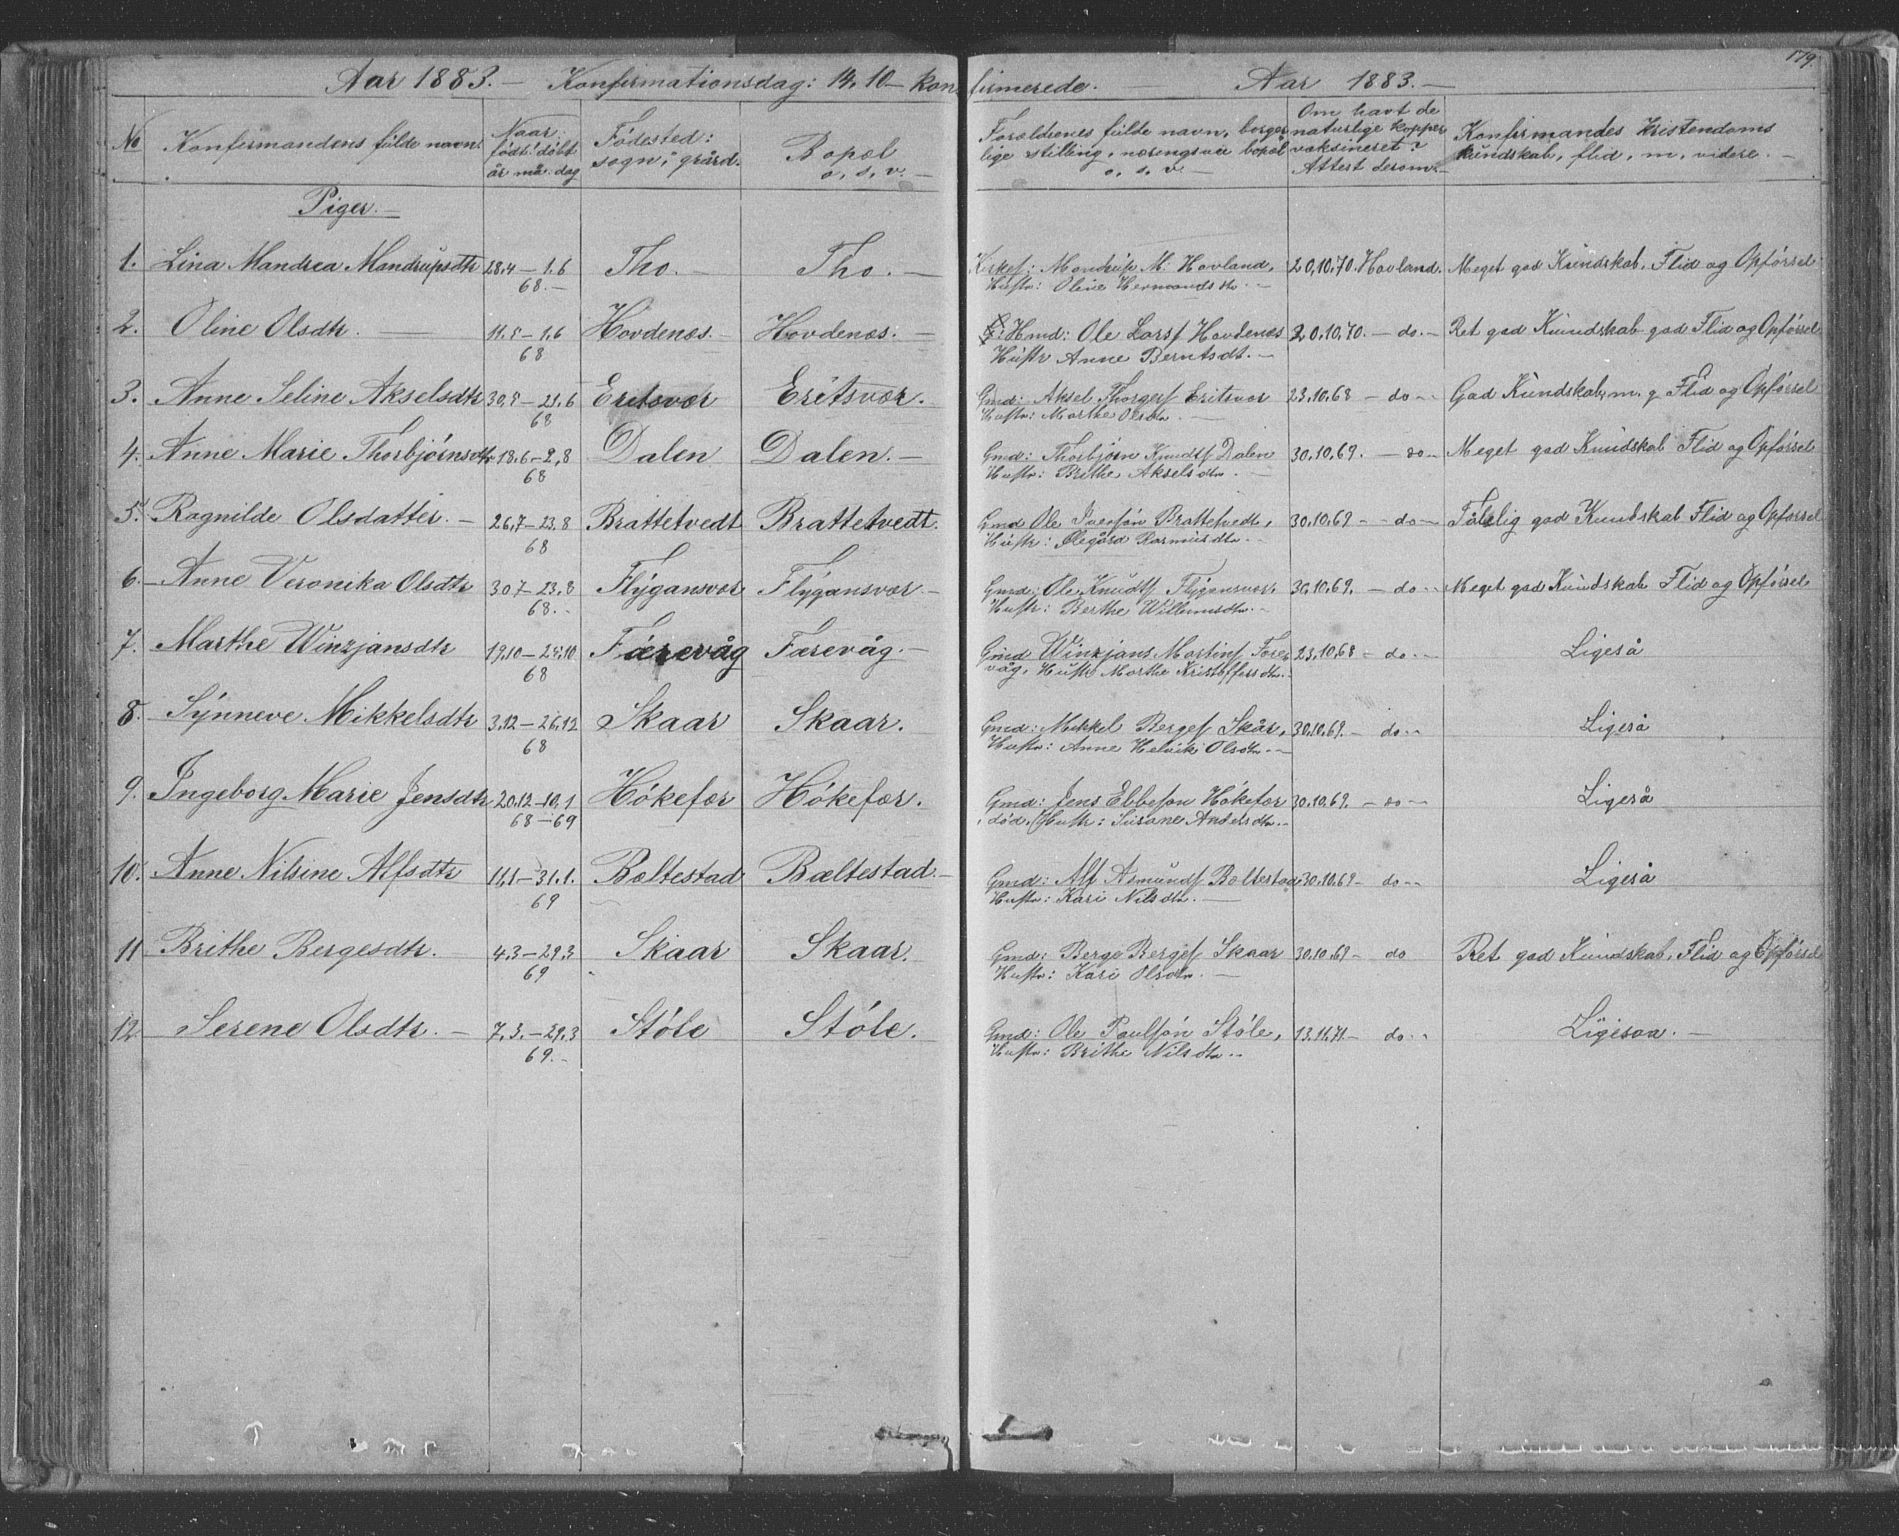 179.
Aar 1883. — Konfirmationsdag: 14. 10 — konfirmerede. — Aar 1883. —
No | Konfirmandens fulde navn. | Naar født: døbt år må. dag | Fødested: sogn, gård. | Bopæl o. s. v. — | Forældrenes fulde navn, borgerlige stilling, næringsvei bopæl o. s. v. — | Om havt de naturlige kopper vaksineret? Attest derom. — | Konfirmandes kristendoms kundskab, flid, m, videre. —
Piger. —
1. Lina Mandrea Mandrupsdtr 28,4 — 1,6 Tho. — Tho. — Mandrup M. Hovland, 20,10,70. Hovland. Meget god Kundskab, Flid og Opførsel
68. — Hustr: Oline Hermandsdtr. —
2. Oline Olsdtr. — 11,5 — 1,6 Hovdenæs. — Hovdenæs. — Hmd: Ole Larss Hovdenæs 20,10,70. — do. — Ret god Kundskab god Flid og Opførsel
68 Hustr Anne Berntsdt. —
3. Anne Seline Akselsdtr 30,5 — 21,6 Eritsvær Eritsvær. Gmd: Aksel Thorgers Eritsvær 23,10,68 — do — God Kundskab, m. g Flid og Opførsel
68 Hustr: Marthe Olsdtr. —
4. Anne Marie Thorbjørnsdtr 18.6 — 2,8 Dalen Dalen. — Gmd: Thorbjørn Knudss Dalen 30,10,69. — do — Meget god Kundskab Flid og Opførsel
68 Hustr: Brithe Akselsdtr. —
5. Ragnilde Olsdatter. — 26,7 — 23.8 Brattetvedt Brattetvedt. Gmd Ole Iversøn Brattetvedt, 30,10,69 — do — Tålelig god Kundskab Flid og Opførsel
68 Hustr: Ølegård Rasmusdtr. —
6. Anne Veronika Olsdtr 30 7 — 23,8 Flygansvær Flygansvær — Gmd: Ole Knudss Flygansvær, 30,10,69. — do — Meget god Kundskab Flid og Opførsel
68. — Hustr: Berthe Willumsdtr. —
7. Marthe Winzjansdtr 19,10 — 25,10 Færevåg Færevåg. — Gmd Winzjans Martins Fære- 23,10,68 — do. — Ligeså
68 våg, Hustr Marthe Kristoffersdtr. —
8. Synneve Mikkelsdtr 3,12 — 26,12 Skaar Skaar. Gmd: Mikkel Berges Skår, 30,10,69. — do — Ligeså
68 Hustr: Anne Helvik Olsdtr. —
9. Ingeborg Marie Jensdtr 20,12 — 10,1 Høkefær Høkefær. Gmd: Jens Ebbesøn Høkefær 30,10,69. — do — Ligeså
68 — 69 død. Hustr: Susane Andelsdtr. —
10. Anne Nilsine Alfsdtr 11,1 — 31,1. Bæltestad Bæltestad. — Gmd: Alf Asmunds Bæltestad 30,10,69 — do — Ligeså
69 Hustr: Kari Nilsdtr. —
11 Brithe Bergesdtr. 4,3 — 29,3 Skaar Skaar. Gmd: Berge Berges Skaar 30,10,69 — do Ret god Kundskab, Flid og Opførsel
69 Hustr: Kari Olsdtr. —
12 Serene Olsdtr. — 7,3. — 29,3 Støle Støle. Gmd: Ole Paulsøn Støle, 13,11,71 — do — Ligesaa. —
69. — Hustr: Brithe Nilsdtr. —